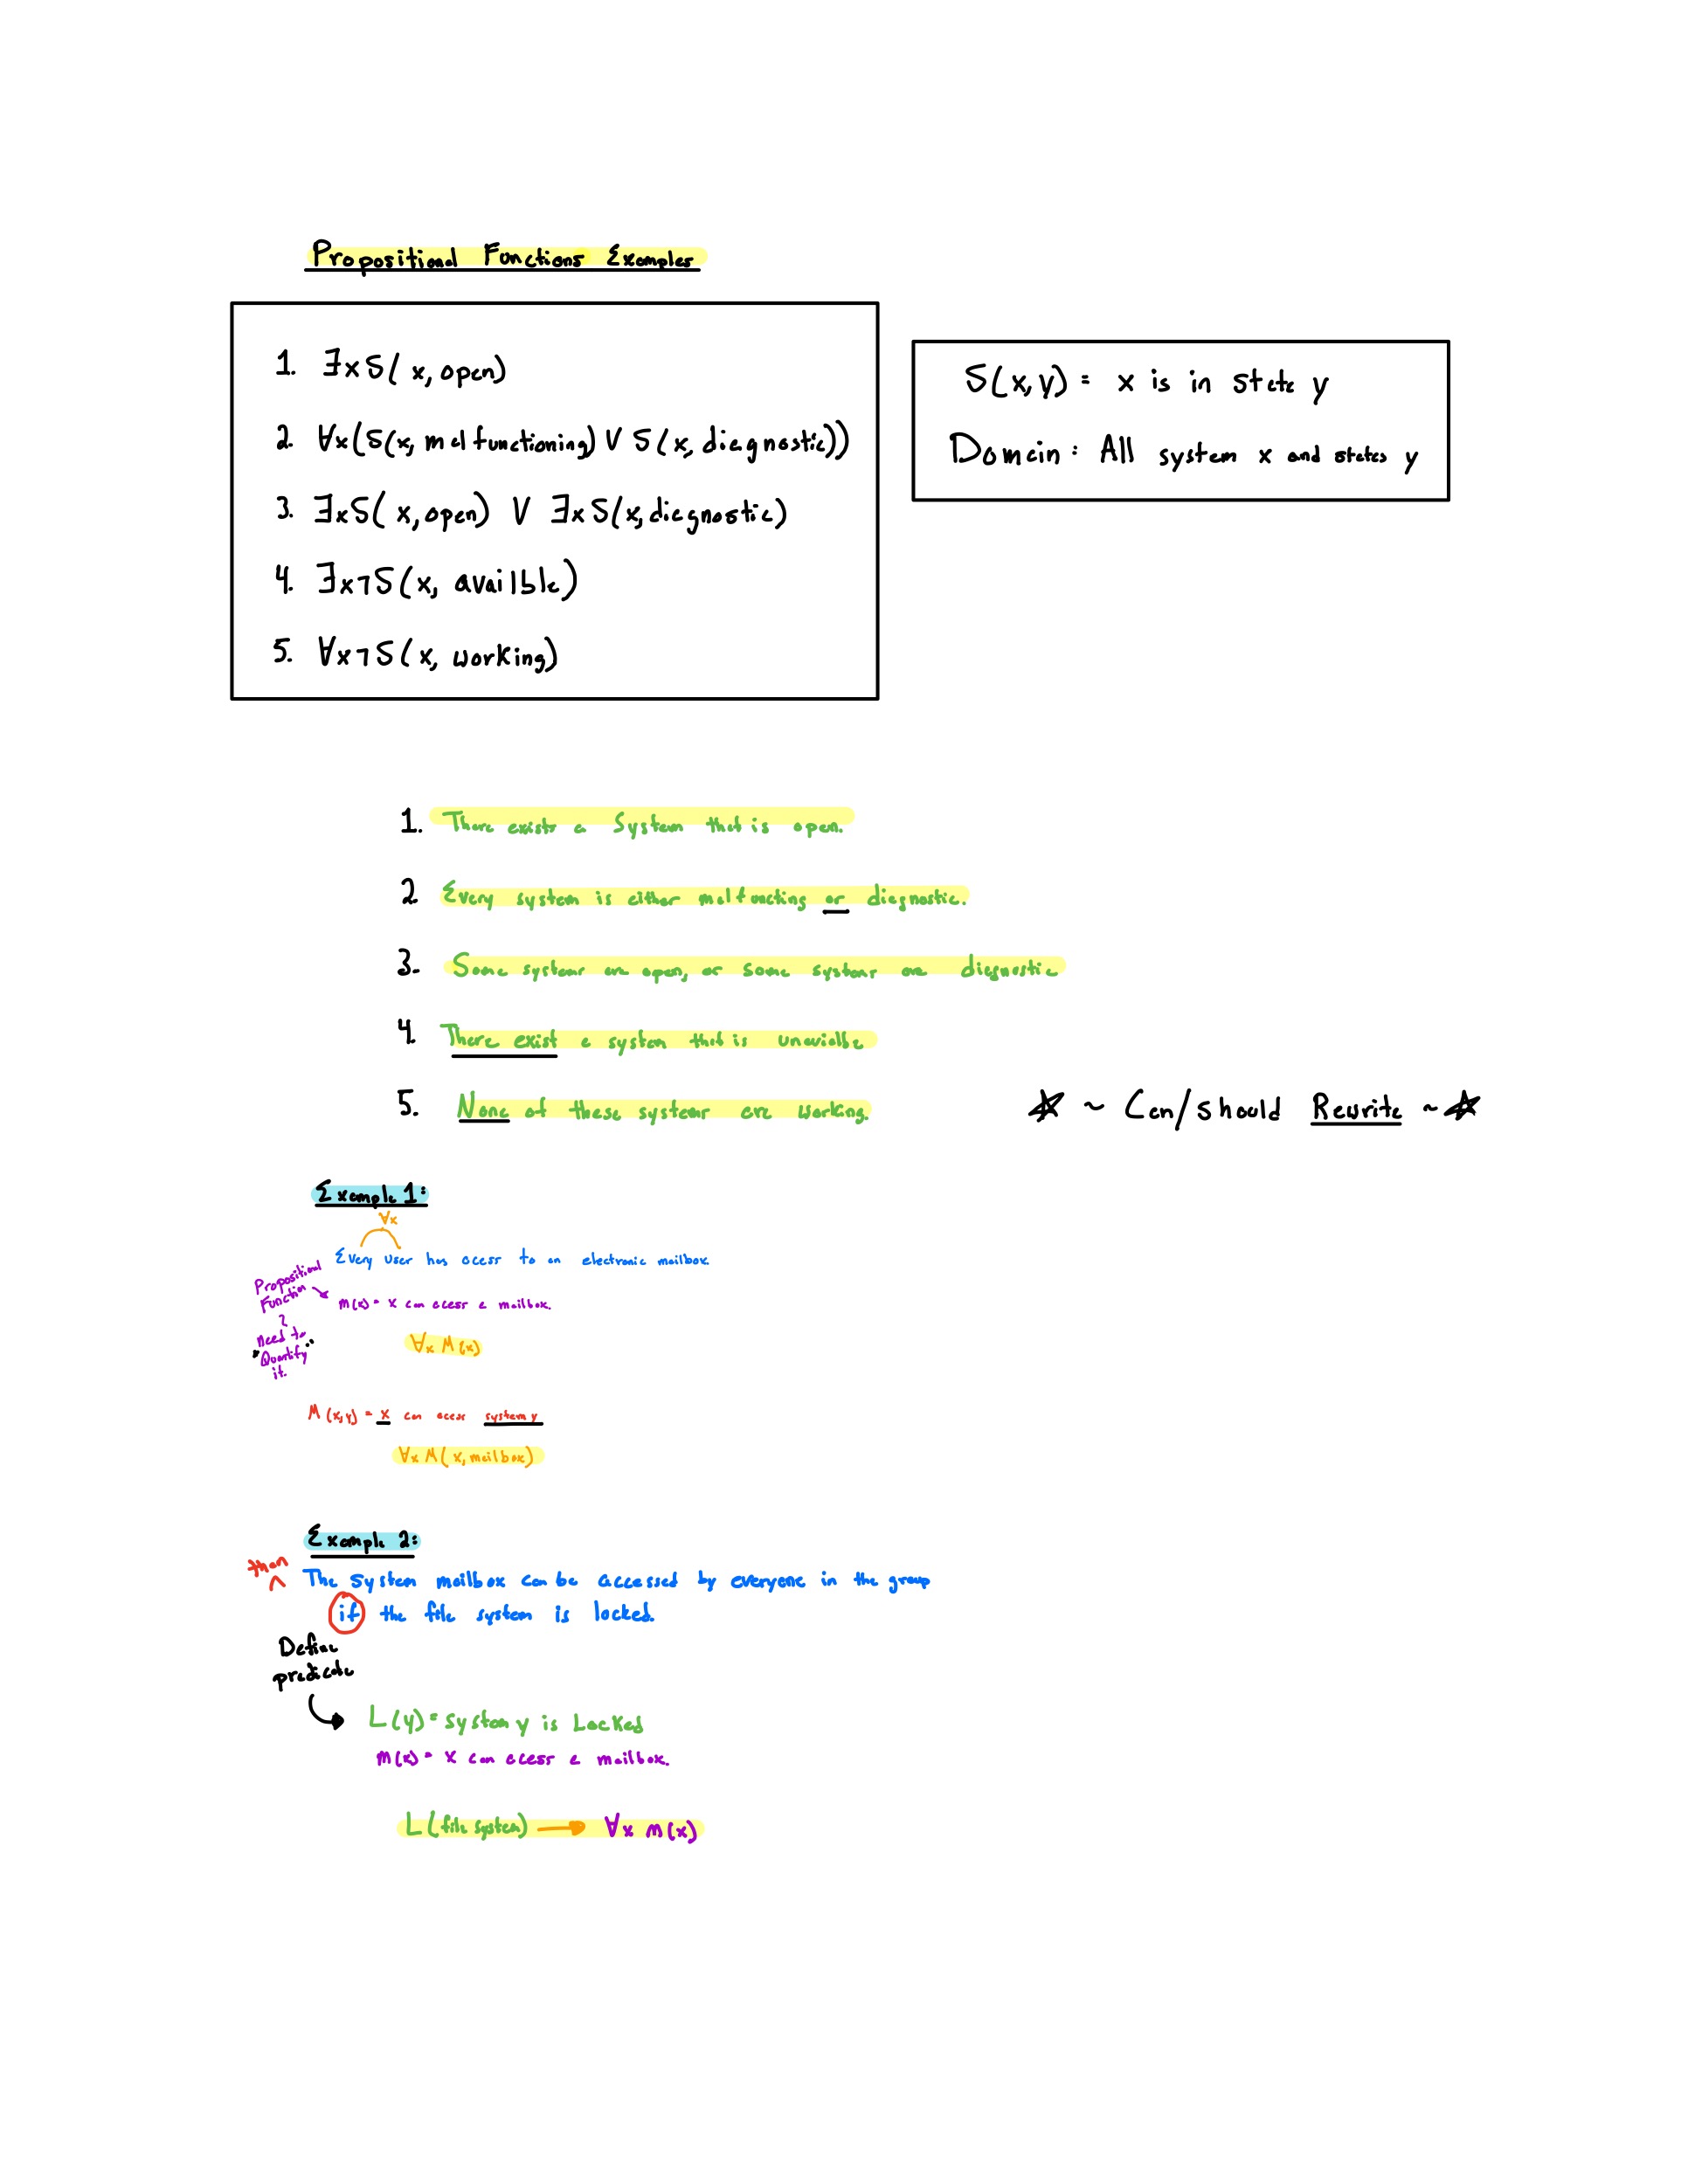 Propositional Functions Examples
1. ∃xS(x, open)
2. ∀x(S(x, malfunctioning) ∨ S(x, diagnostic))
3. ∃xS(x, open) ∨ ∃xS(x, diagnostic)
4. ∃x¬S(x, availble)
5. ∀x¬S(x, working)
S(x,y) = x is in state y
Domain: All system x and states y
1. There exists a System that is open.
2. Every system is either malfuncting or diagnostic.
3. Some systems are open, or some systems are diagnostic
4. There exist a system that is unavialbe
5. None of these systems are working.
☆ ~ Can/should Rewrite ~ ☆
Example 1:
∀x
Every user has acess to an electronic mailbox.
Propositional
Function
M(x) = x can acess a mailbox.
need to
"Quantify"
it.
∀x M(x)
M(x,y) = x can acess system y
∀x M(x, mailbox)
Example 2:
then
The system mailbox can be accessed by everyone in the group
if the file system is locked.
Define
predicate
L(y) = system y is Locked
M(x) = x can acess a mailbox.
L(file system) → ∀x M(x)